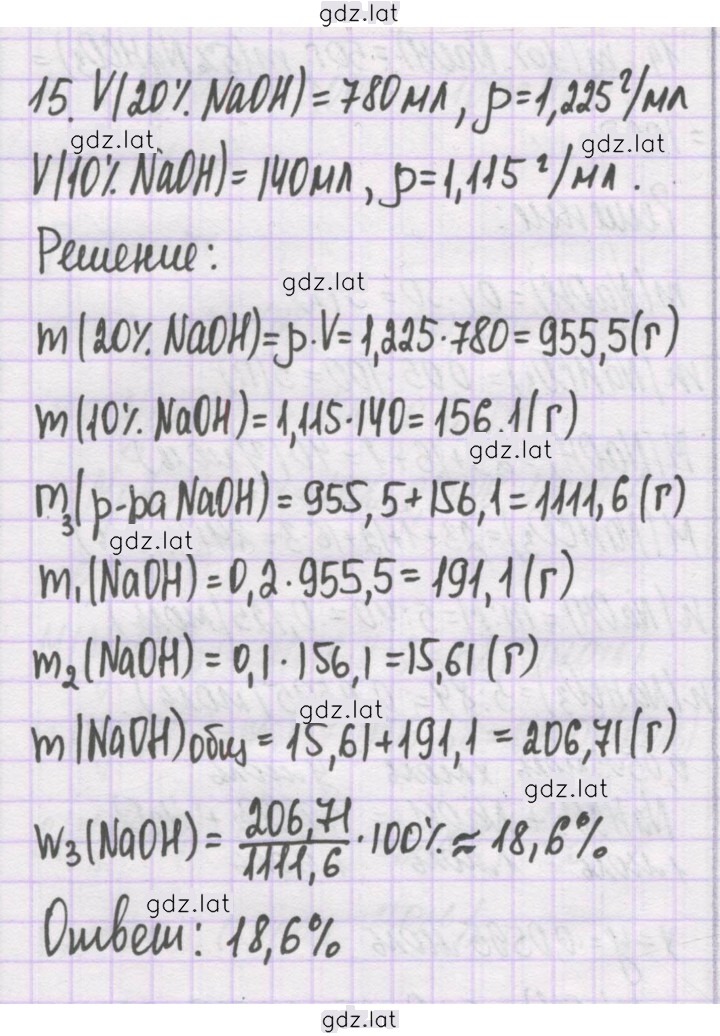 gdz.lat
15. V(20% NaOH) = 780мл, ρ=1,225 г/мл
gdz.lat gdz.lat
V(10% NaOH) = 140мл, ρ=1,115 г/мл.
Решение:
gdz.lat
m(20% NaOH)=ρ·V=1,225·780=955,5(г)
m(10% NaOH)=1,115·140=156,1(г)
gdz.lat
m₃(р-ра NaOH)=955,5+156,1=1111,6(г)
gdz.lat
m₁(NaOH)=0,2·955,5=191,1(г)
m₂(NaOH)=0,1·156,1=15,61(г)
gdz.lat
m(NaOH)общ=15,61+191,1=206,71(г)
gdz.lat
w₃(NaOH)=206,71/1111,6·100%≈18,6%
gdz.lat
Ответ: 18,6%
gdz.lat